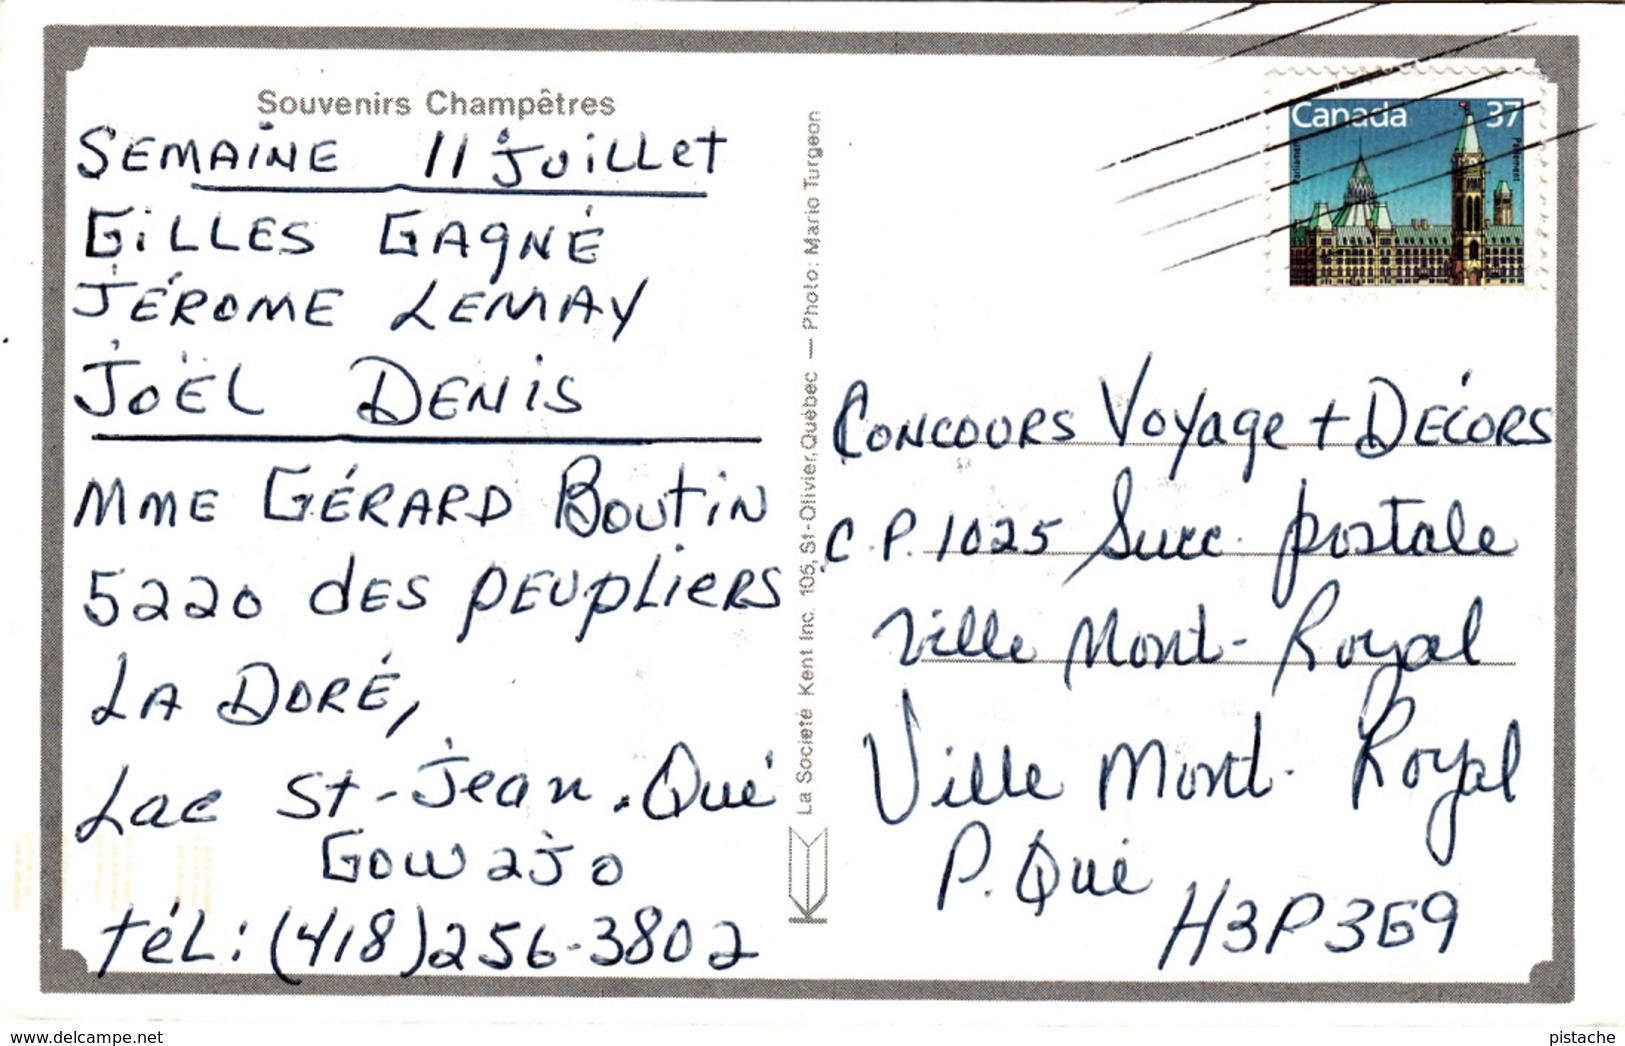 Souvenirs Champêtres
SEMAINE 11 Juillet
GILLES GAGNÉ
JÉROME LEMAY
JOËL DENIS
MME GÉRARD BOUTIN
5220 des PEUPLIERS
LA DORÉ,
Lac St-Jean. Qué
GOW 2J0
tél: (418) 256-3802
La Societé Kent Inc. 105, St-Olivier, Québec — Photo: Mario Turgeon
Canada 37
Parliament
Parlement
CONCOURS Voyage + DÉCORS
C.P. 1025 Succ. postale
Ville Mont-Royal
Ville Mont-Royal
P. Qué
H3P3G9
www.delcampe.net
pistache